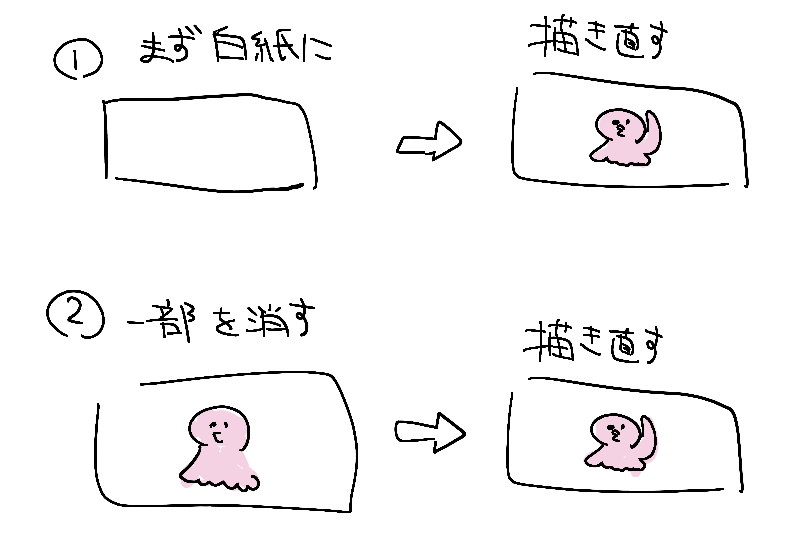 ① まず白紙に
描き直す
② 一部を消す
描き直す